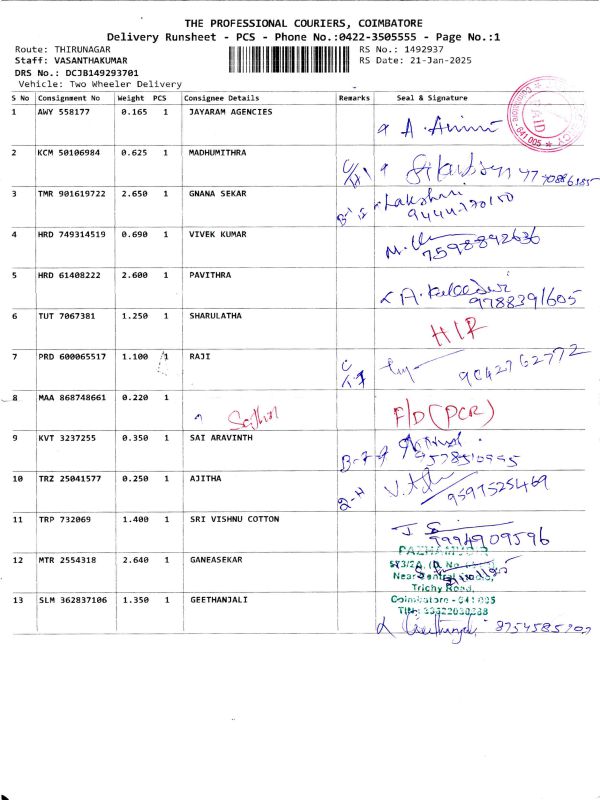 THE PROFESSIONAL COURIERS, COIMBATORE
Delivery Runsheet - PCS - Phone No.:0422-3505555 - Page No.:1
Route: THIRUNAGAR RS No.: 1492937
Staff: VASANTHAKUMAR RS Date: 21-Jan-2025
DRS No.: DCJB149293701
Vehicle: Two Wheeler Delivery
S No Consignment No Weight PCS Consignee Details Remarks Seal & Signature
1 AWY 558177 0.165 1 JAYARAM AGENCIES
PAID
641 005
2 KCM 50106984 0.625 1 MADHUMITHRA
3 TMR 901619722 2.650 1 GNANA SEKAR Lakshmi
4 HRD 749314519 0.690 1 VIVEK KUMAR
7598892636
5 HRD 61408222 2.600 1 PAVITHRA
9788391605
6 TUT 7067381 1.250 1 SHARULATHA
7 PRD 600065517 1.100 1 RAJI 9042762772
8 MAA 868748661 0.220 1 F/D (PCR)
9 KVT 3237255 0.350 1 SAI ARAVINTH
10 TRZ 25041577 0.250 1 AJITHA
9597525469
11 TRP 732069 1.400 1 SRI VISHNU COTTON
9994909596
12 MTR 2554318 2.640 1 GANEASEKAR
Near Central
Trichy Road,
13 SLM 362837106 1.350 1 GEETHANJALI Coimbatore - 641 005
Geethanjali